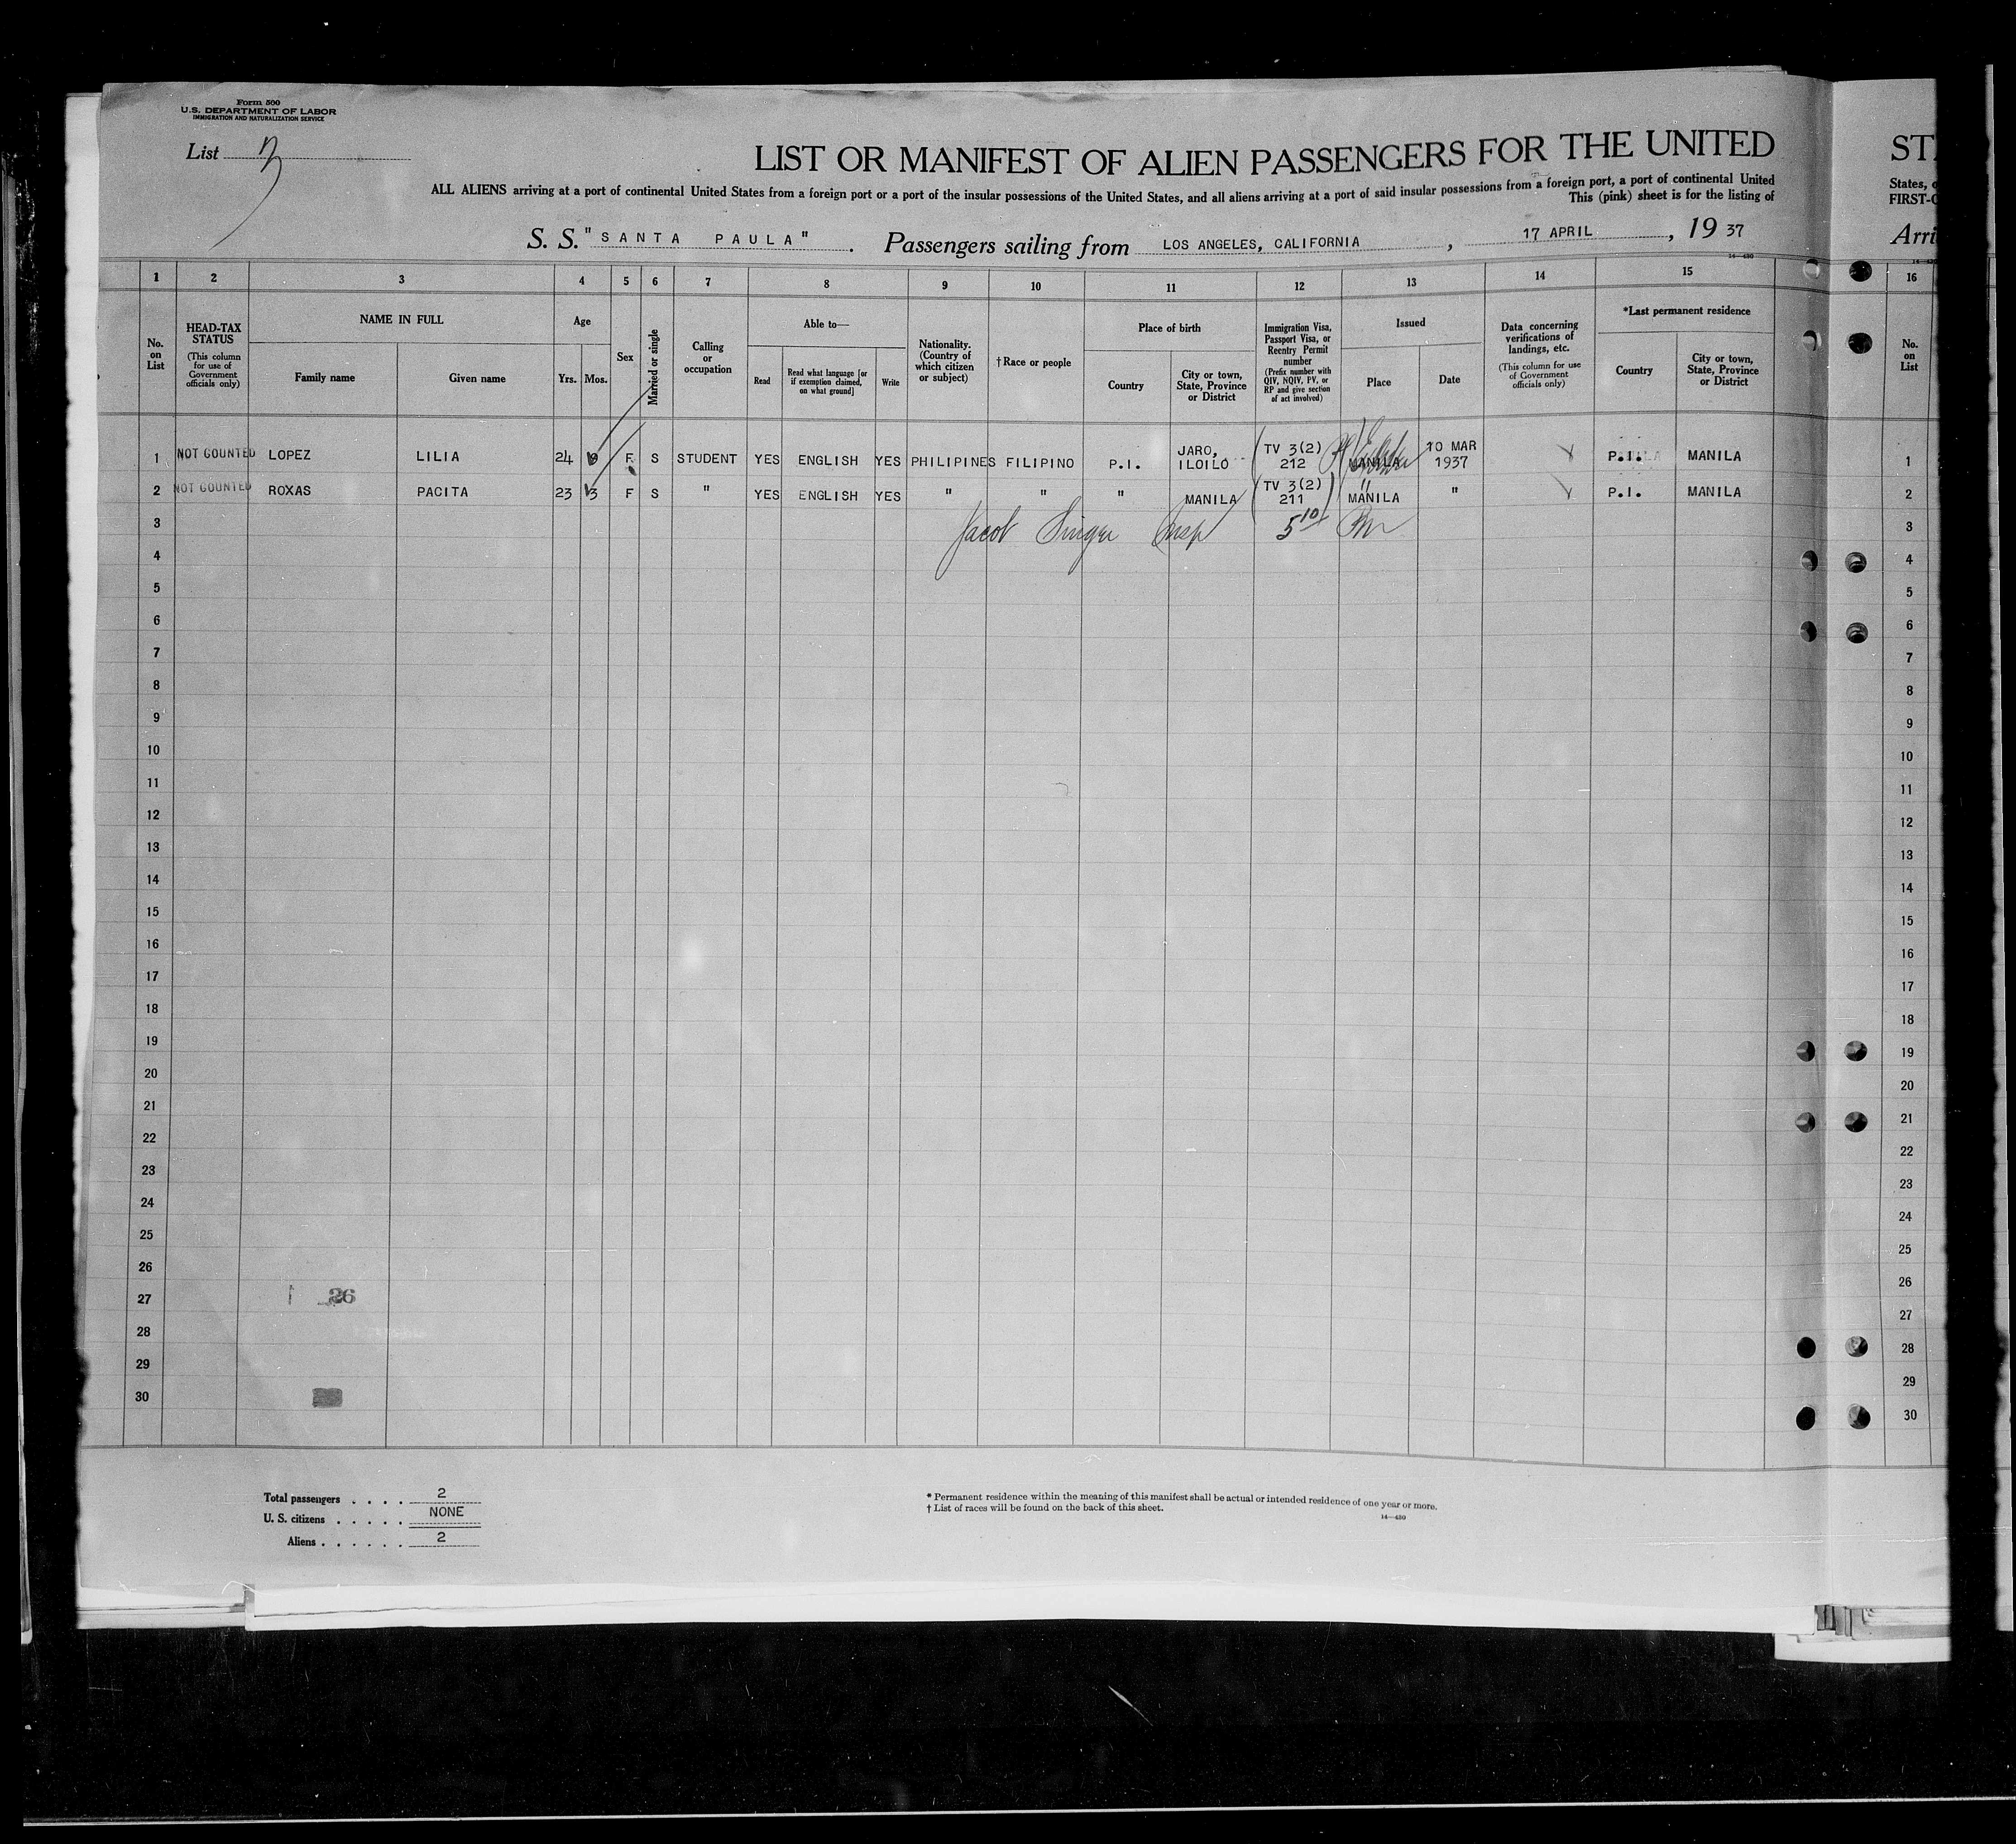 Form 500
U.S. DEPARTMENT OF LABOR
IMMIGRATION AND NATURALIZATION SERVICE
List
LIST OR MANIFEST OF ALIEN PASSENGERS FOR THE UNITED
STA
ALL ALIENS arriving at a port of continental United States from a foreign port or a port of the insular possessions of the United States, and all aliens arriving at a port of said insular possessions from a foreign port, a port of continental United
States, o
This (pink) sheet is for the listing of
FIRST-C
S. S. "SANTA PAULA". Passengers sailing from LOS ANGELES, CALIFORNIA, 17 APRIL, 19 37
Arri
14—430
1 2 3 4 5 6 7 8 9 10 11 12 13 14 15 16
No. on List
HEAD-TAX STATUS
(This column for use of Government officials only)
NAME IN FULL
Family name
Given name
Age
Yrs. Mos.
Sex
Married or single
Calling or occupation
Able to—
Read
Read what language [or if exemption claimed, on what ground]
Write
Nationality. (Country of which citizen or subject)
†Race or people
Place of birth
Country
City or town, State, Province or District
Immigration Visa, Passport Visa, or Reentry Permit number
(Prefix number with QIV, NQIV, PV, or RP and give section of act involved)
Issued
Place
Date
Data concerning verifications of landings, etc.
(This column for use of Government officials only)
*Last permanent residence
Country
City or town, State, Province or District
No. on List
1 NOT COUNTED LOPEZ LILIA 24 F S STUDENT YES ENGLISH YES PHILIPINES FILIPINO P.I. JARO, ILOILO TV 3(2) 212 MANILA 10 MAR 1937 P.I. MANILA 1
2 NOT COUNTED ROXAS PACITA 23 3 F S " YES ENGLISH YES " " " MANILA TV 3(2) 211 MANILA " P.I. MANILA 2
3 Jacob Singer Insp 5 10 3
4 4
5 5
6 6
7 7
8 8
9 9
10 10
11 11
12 12
13 13
14 14
15 15
16 16
17 17
18 18
19 19
20 20
21 21
22 22
23 23
24 24
25 25
26 26
27 26 27
28 28
29 29
30 30
Total passengers . . . . 2
U. S. citizens . . . . . NONE
Aliens . . . . . . 2
* Permanent residence within the meaning of this manifest shall be actual or intended residence of one year or more.
† List of races will be found on the back of this sheet.
14—430